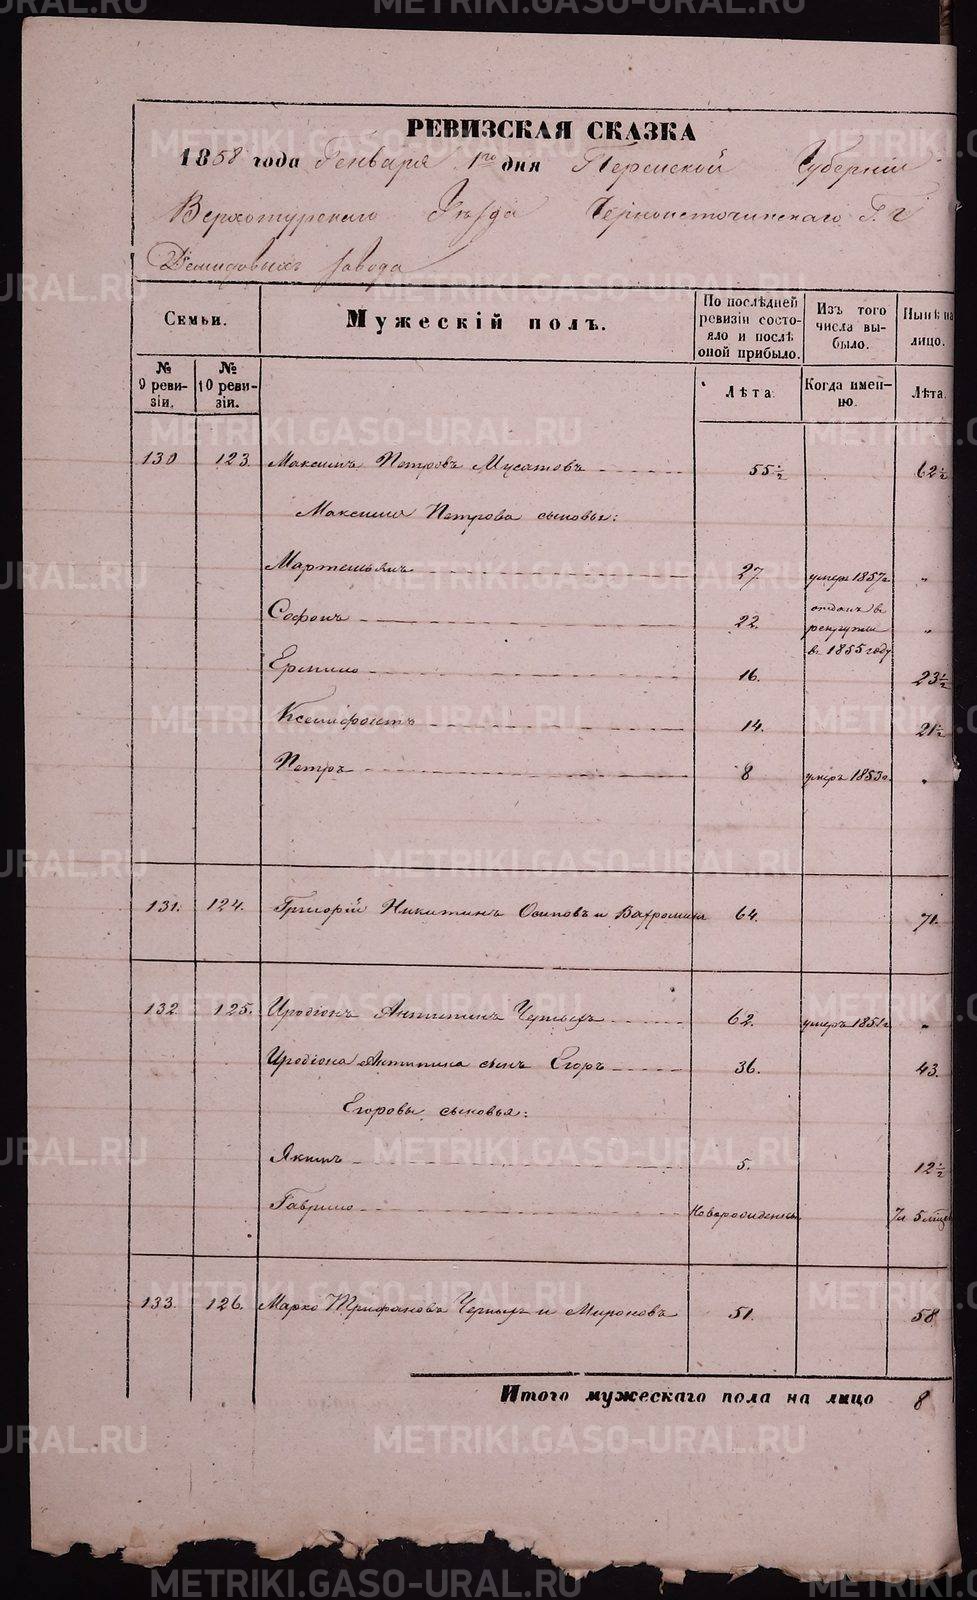 РЕВИЗСКАЯ СКАЗКА
1858 года Генваря 1го дня Пермской Губерніи
Верхотурскаго Уѣзда Черноисточинскаго Г.г
Демидовыхъ завода
Семьи.
Мужескій полъ.
По послѣдней ревизіи состояло и послѣ оной прибыло.
Изъ того числа выбыло.
Нынѣ на лицо.
№ 9 ревизіи.
№ 10 ревизіи.
Лѣта.
Когда именно.
Лѣта.
130 123. Максимъ Петровъ Мусатовъ 55½ 62½
Максима Петрова сыновья:
Мартемьянъ 27. умеръ 1857г "
Софонъ 22. отданъ в рекруты в 1855 году "
Ермило 16. 23½
Ксенофонтъ 14. 21½
Петръ 8 умеръ 1853г. "
131. 124. Григорій Никитинъ Осиповъ и Вахромеевъ 64. 71.
132 125. Иродіонъ Антипинъ Черныхъ 62. умеръ 1851г "
Иродіона Антипина сынъ Егоръ 36. 43.
Егоровы сыновья:
Якимъ 5. 12½
Гаврило Новорожденъ 7л 5 мѣсяц
133. 126. Марко Трифановъ Черныхъ и Мироновъ 51. 58
Итого мужескаго пола на лицо 8
METRIKI.GASO-URAL.RU